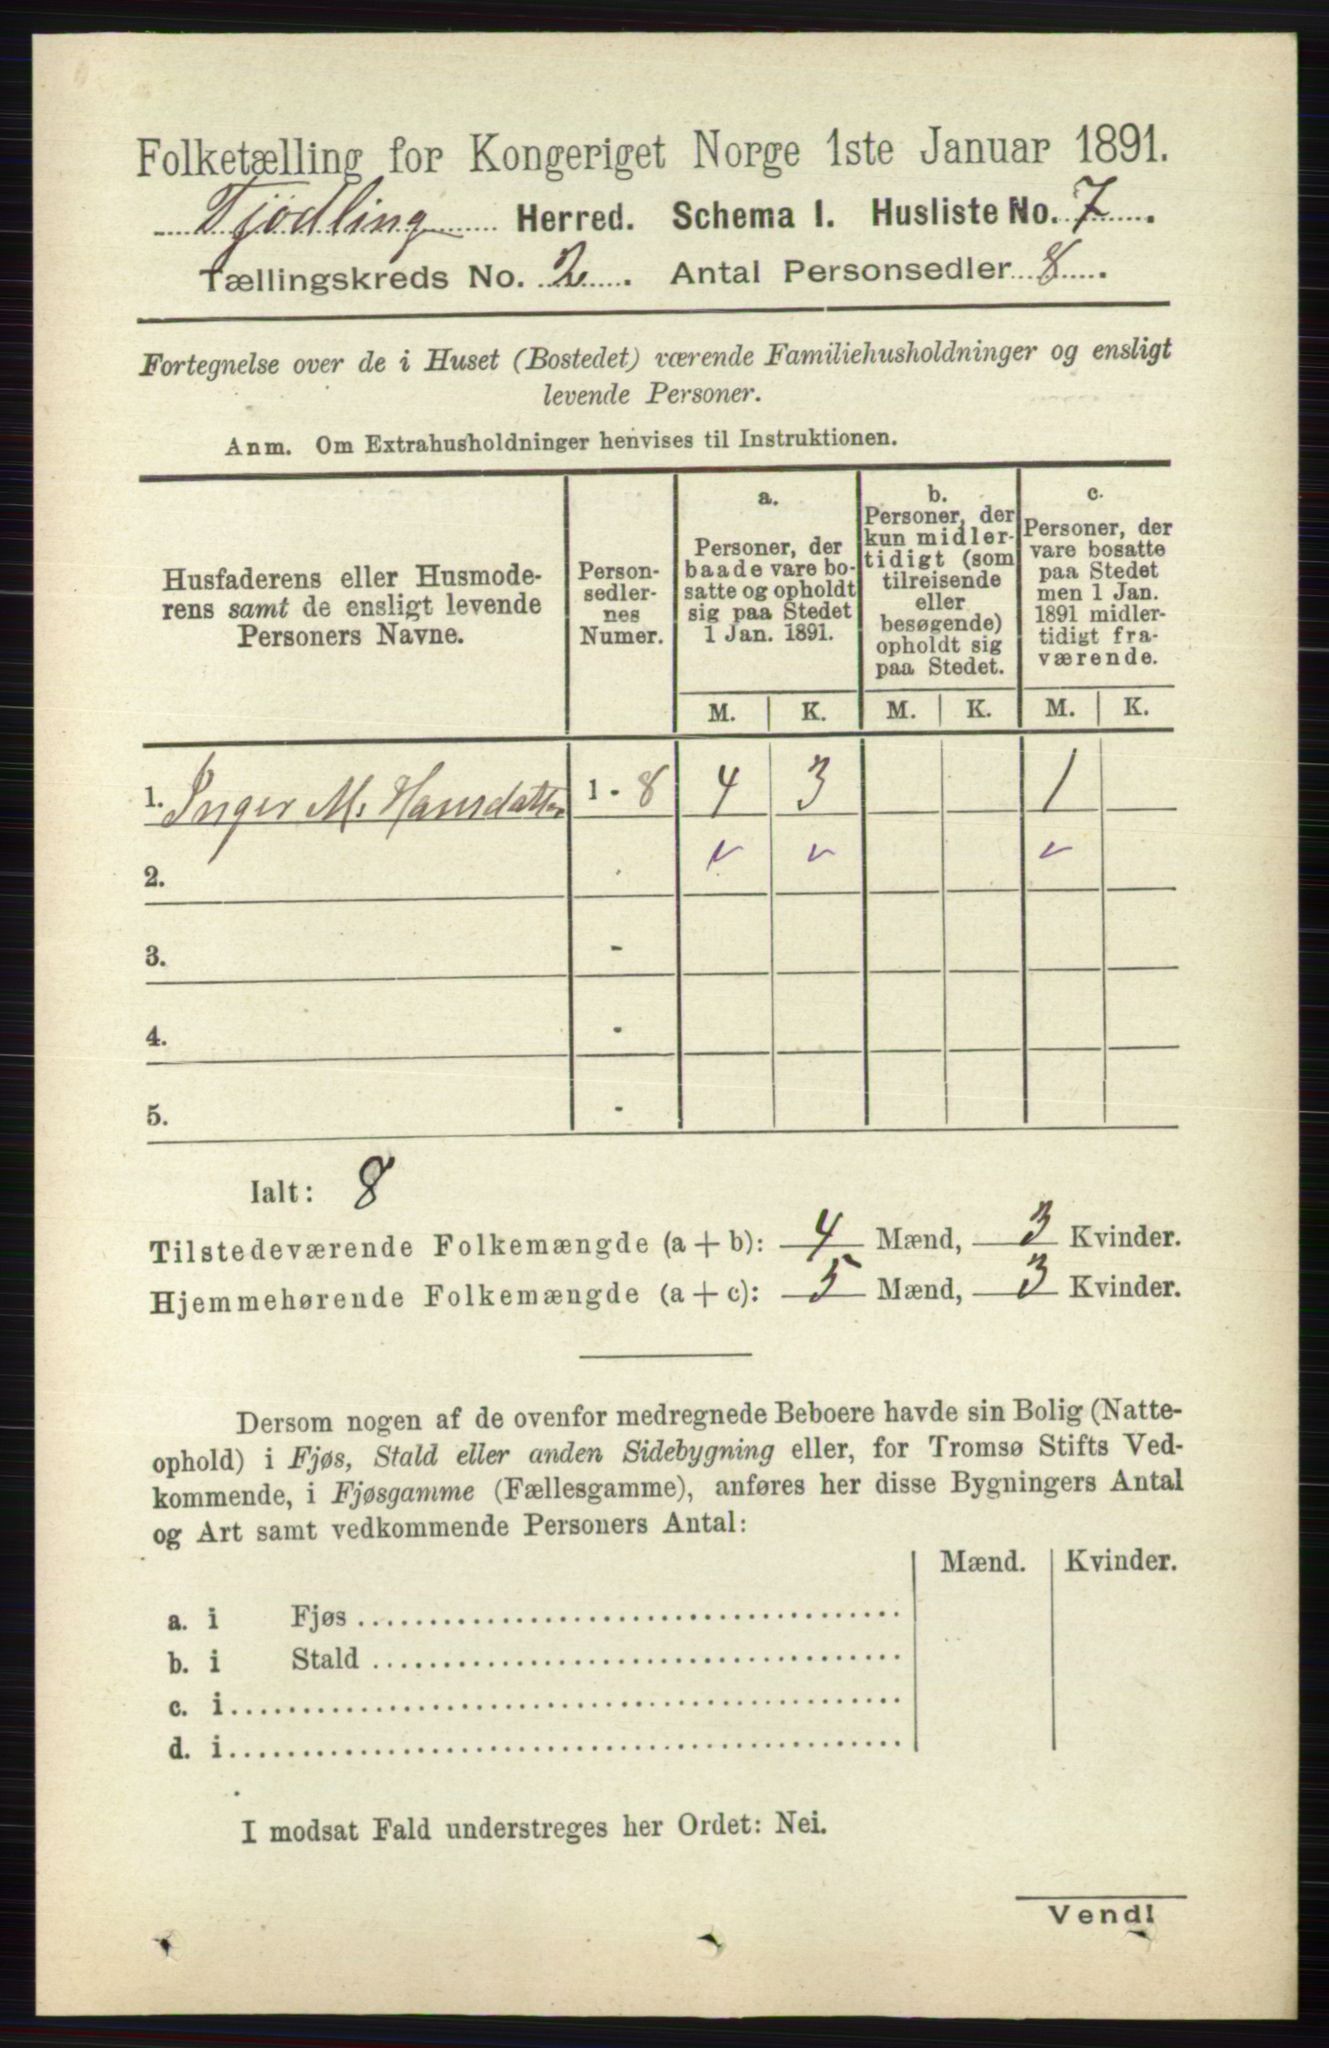 Folketælling for Kongeriget Norge 1ste Januar 1891.
Tjødling Herred. Schema I. Husliste No. 7.
Tællingskreds No. 2. Antal Personsedler 8.
Fortegnelse over de i Huset (Bostedet) værende Familiehusholdninger og ensligt
levende Personer.
Anm. Om Extrahusholdninger henvises til Instruktionen.
Husfaderens eller Husmode-
rens samt de ensligt levende
Personers Navne.
Person-
sedler-
nes
Numer.
a.
Personer, der
baade vare bo-
satte og opholdt
sig paa Stedet
1 Jan. 1891.
b.
Personer, der
kun midler-
tidigt (som
tilreisende
eller
besøgende)
opholdt sig
paa Stedet.
c.
Personer, der
vare bosatte
paa Stedet
men 1 Jan.
1891 midler-
tidigt fra-
værende.
M. K. M. K. M. K.
1. Inger M. Hansdatter 1 - 8 4 3 1
2.
3. -
4. -
5. -
Ialt: 8
Tilstedeværende Folkemængde (a + b): 4 Mænd, 3 Kvinder.
Hjemmehørende Folkemængde (a + c): 5 Mænd, 3 Kvinder.
Dersom nogen af de ovenfor medregnede Beboere havde sin Bolig (Natte-
ophold) i Fjøs, Stald eller anden Sidebygning eller, for Tromsø Stifts Ved-
kommende, i Fjøsgamme (Fællesgamme), anføres her disse Bygningers Antal
og Art samt vedkommende Personers Antal:
Mænd. Kvinder.
a. i Fjøs
b. i Stald
c. i
d. i
I modsat Fald understreges her Ordet: Nei.
Vend!